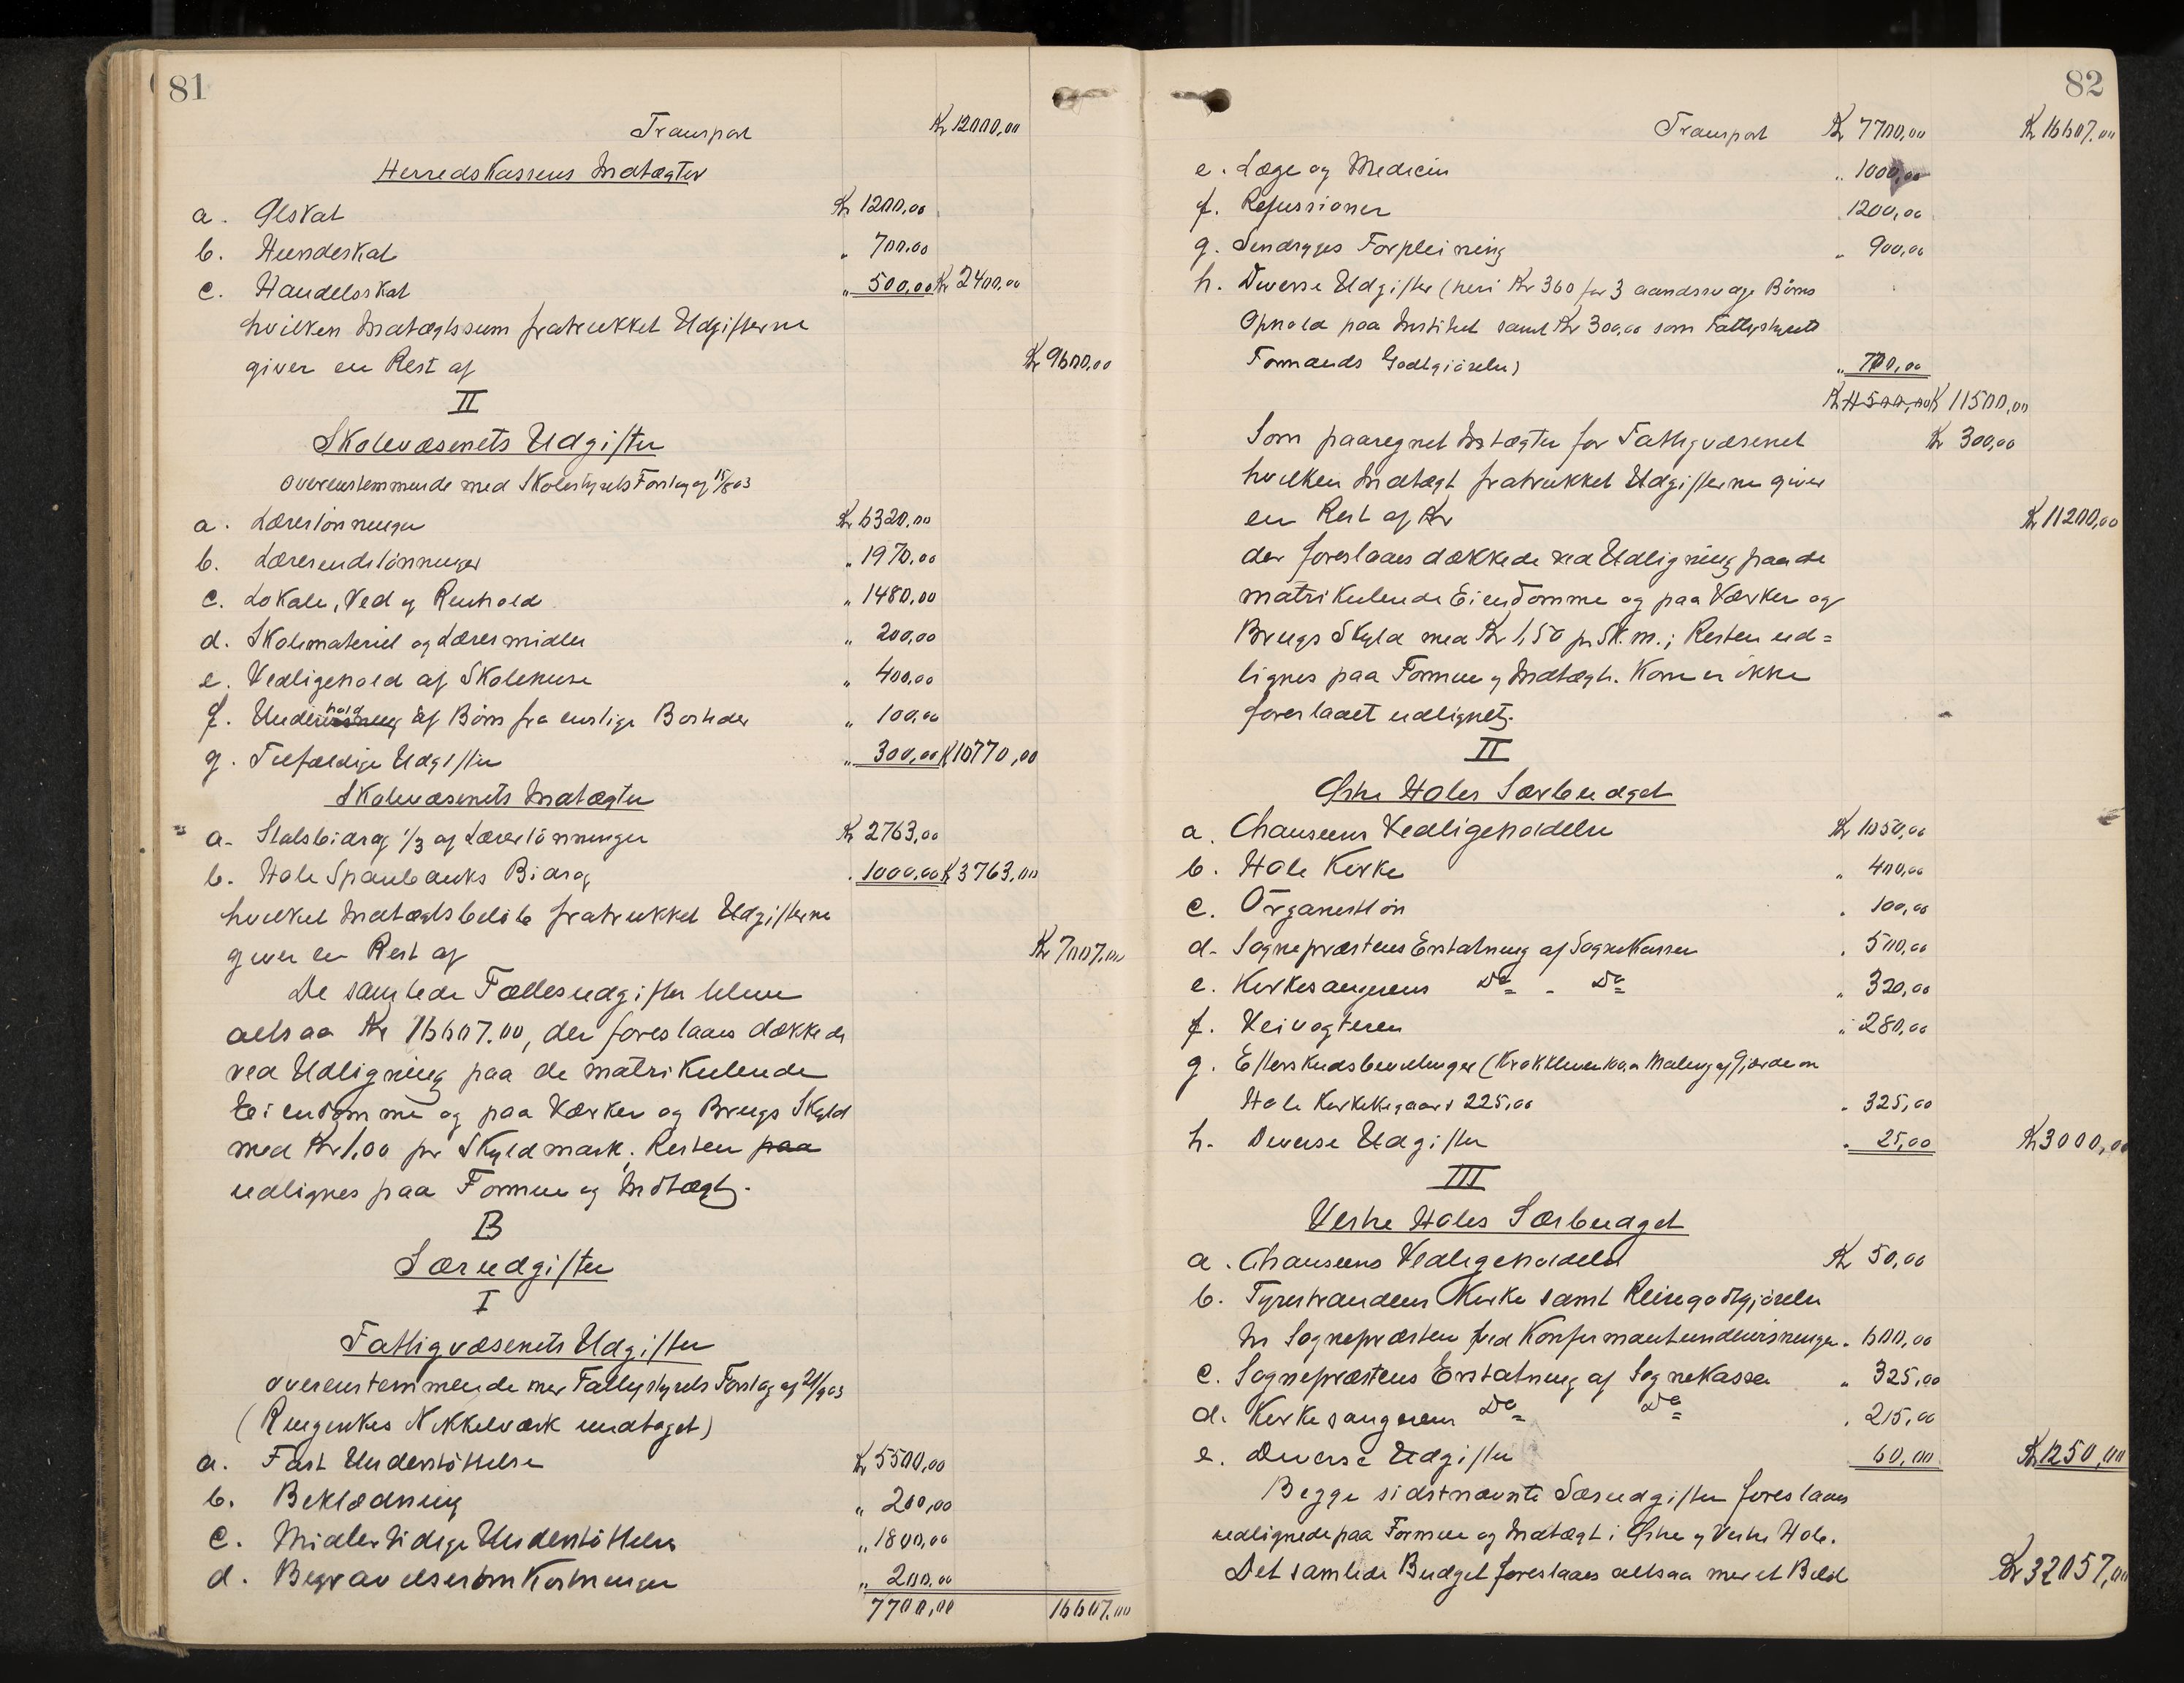 81
Transport Kr 12000,00
Herredskassens Indtægter
a. Ølskat Kr 1200,00
b. Hundeskat „ 700,00
c. Handelsskat „ 500,00 Kr 2400,00
hvilken Indtægtssum fratrukket Udgifterne
giver en Rest af Kr 9600,00
II
Skolevæsenets Udgifter
overenstemmende med Skolestyrets Forslag af 15/8 03
a. Lærerlønninger Kr 6320,00
b. Lærerindelønninger „ 1970,00
c. Lokale, Ved og Renhold „ 1480,00
d. Skolemateriel og Læresmidler „ 200,00
e. Vedligehold af Skolehuse „ 400,00
f. Underhold af Børn fra enslige Bosteder „ 100,00
g. Tilfældige Udgifter „ 300,00 Kr 10770,00
Skolevæsenets Indtægter
a. Statsbidrag 1/3 af Lærerlønninger Kr 2763,00
b. Hole Sparebanks Bidrag „ 1000,00 Kr 3763,00
hvilket Indtægtsbeløb fratrukket Udgifterne
giver en Rest af Kr 7007,00
De samlede Fællesudgifter bliver
altsaa Kr 16607.00, der foreslaaes dækkede
ved Udligning paa de matrikulerede
Eiendomme og paa Værker og Brugs Skyld
med Kr 1,00 pr Skyldmark; Resten paa
udlignes paa Formue og Indtægt.
B
Særudgifter
I
Fattigvæsenets Udgifter
overenstemmende med Fattigstyrets Forslag af 21/9 03
(Ringerikes Nikkelværk undtaget)
a. Fast Understøttelse Kr 5500,00
b. Beklædning „ 200,00
c. Midlertidige Understøttelser „ 1800,00
d. Begravelsesomkostninger „ 200,00
7700,00 16607,00
82
Transport Kr 7700,00 Kr 16607,00
e. Læge og Medicin „ 1000,00
f. Refusioner 1200,00
g. Sindsyges Forpleining „ 900,00
h. Diverse Udgifter (heri Kr 360 for 3 aandssvage Børns
Ophold paa Institut samt Kr 300,00 som Fattigstyrets
Formands Godtgjørelse) „ 700,00
Kr 11500,00 Kr 11500,00
Som paaregnet Indtægter for Fattigvæsenet Kr 300,00
hvilken Indtægt fratrukket Udgifterne giver
en Rest af Kr Kr 11200,00
der foreslaaes dækkede ved Udligning paa de
matrikulerede Eiendomme og paa Værker og
Brugs Skyld med Kr 1,50 pr Sk. m.; Resten ud=
lignes paa Formue og Indtægt. Korn er ikke
foreslaaet udlignet.
II
Østre Holes Særbudget
a. Chauseens Vedligeholdelse Kr 1050,00
b. Hole Kirke „ 400,00
c. Organistløn „ 100,00
d. Sognepræstens Erstatning af Sognekassen „ 500,00
e. Kirkesangerens Do - Do „ 320,00
f. Veivogteren „ 280,00
g. Efterskudsbevilinger (Krokkleven 100,00 Maling af Gjærde om
Hole Kirkegaard 225,00 „ 325,00
h. Diverse Udgifter „ 25,00 Kr 3000,00
III
Vestre Holes Særbudget
a. Chauseens Vedligeholdelse Kr 50,00
b. Tyristrandens Kirke samt Reisegodtgjørelse
til Sognepræsten ved Konfirmantundervisningen „ 600,00
c. Sognepræstens Erstatning af Sognekassen „ 325,00
d. Kirkesangerens Do Do „ 215,00
e. Diverse Udgifter 60,00 Kr 1250,00
Begge sidstnævnte Særudgifter foreslaaes
udlignede paa Formue og Indtægt i Østre og Vestre Hole.
Det samlede Budget foreslaaes altsaa med et Beløb Kr 32057,00